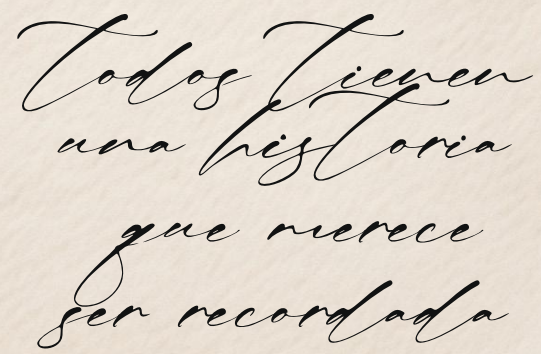 Todos Tienen
una hisToria
que merece
ser recordada